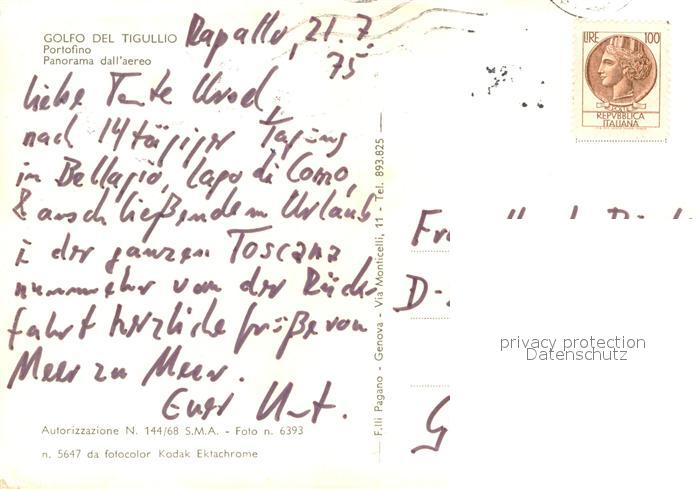 GOLFO DEL TIGULLIO
Portofino
Panorama dall'aereo
Rapallo, 21.7.
75
liebe Tante
nach 14tägiger Tagung
in Bellagio, Lago di Como,
& anschließendem Urlaub
i der ganzen Toscana
nunmehr von der Rück-
fahrt herzliche Grüße von
Meer zu Meer.
Euer
Autorizzazione N. 144/68 S.M.A. - Foto n. 6393
n. 5647 da fotocolor Kodak Ektachrome
F.lli Pagano - Genova - Via Monticelli, 11 - Tel. 893.825
LIRE 100
REPVBBLICA
ITALIANA
D-
G
privacy protection
Datenschutz